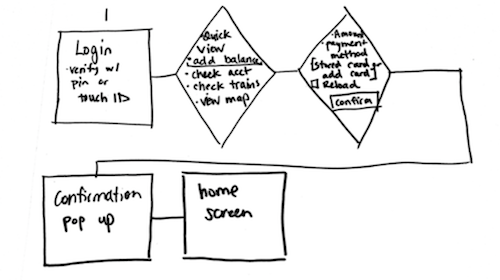 Login
• verify w/
pin or
touch ID
• Quick
view
• add balance
• check acct
• check trains
• view map
• Amount
• payment
method
[stored card or
add card]
Reload
Confirm
Confirmation
pop up
home
screen